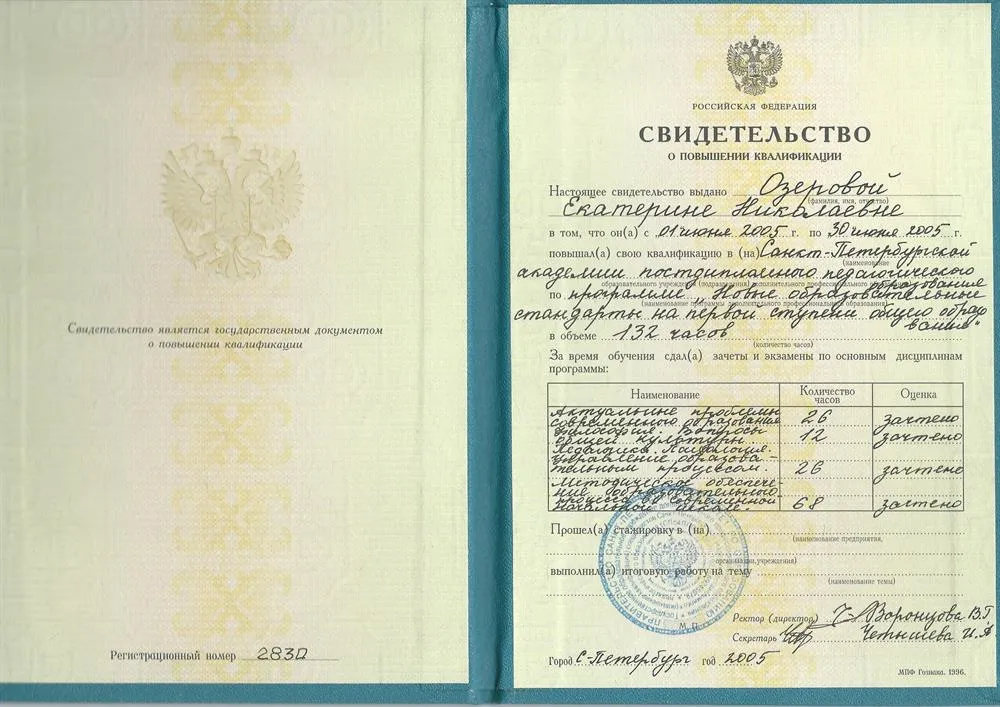 Свидетельство является государственным документом
о повышении квалификации
Регистрационный номер 283D
РОССИЙСКАЯ ФЕДЕРАЦИЯ
СВИДЕТЕЛЬСТВО
О ПОВЫШЕНИИ КВАЛИФИКАЦИИ
Настоящее свидетельство выдано Озеровой
(фамилия, имя, отчество)
Екатерине Николаевне
в том, что он(а) с „01 июня 2005 г. по „30 июня 2005 г.
повышал(а) свою квалификацию в (на) Санкт-Петербургской
(наименование
академии постдипломного педагогического
образовательного учреждения (подразделения) дополнительного профессионального образования
по программе „Новые образовательные
(наименование программы дополнительного профессионального образования)
стандарты на первой ступени общего образо
вания"
в объеме 132 часов
(количество часов)
За время обучения сдал(а) зачеты и экзамены по основным дисциплинам
программы:
Наименование Количество часов Оценка
Актуальные проблемы
современного образования 26 зачтено
Философия. Вопросы
общей культуры. 12 зачтено
Педагогика.
управление образова-
тельным процессом. 26 зачтено
Методическое обеспече-
ние образовательного
процесса в современной
начальной школе. 68 зачтено
Прошел(а) стажировку в (на)
(наименование предприятия,
организации, учреждения)
выполнил(а) итоговую работу на тему
(наименование темы)
М. П.
Ректор (директор) Воронцова В.Г
Секретарь
Город С-Петербург год 2005
МПФ Гознака. 1996.